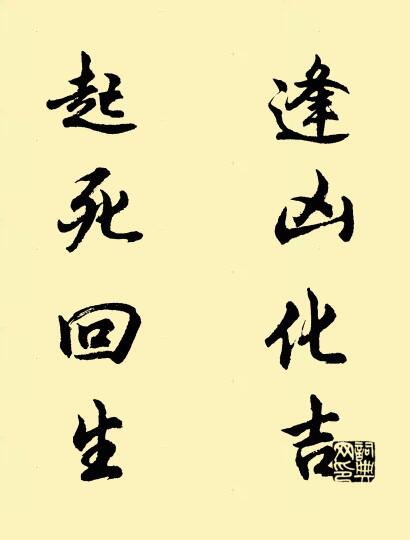 逢凶化吉
起死回生
詞典